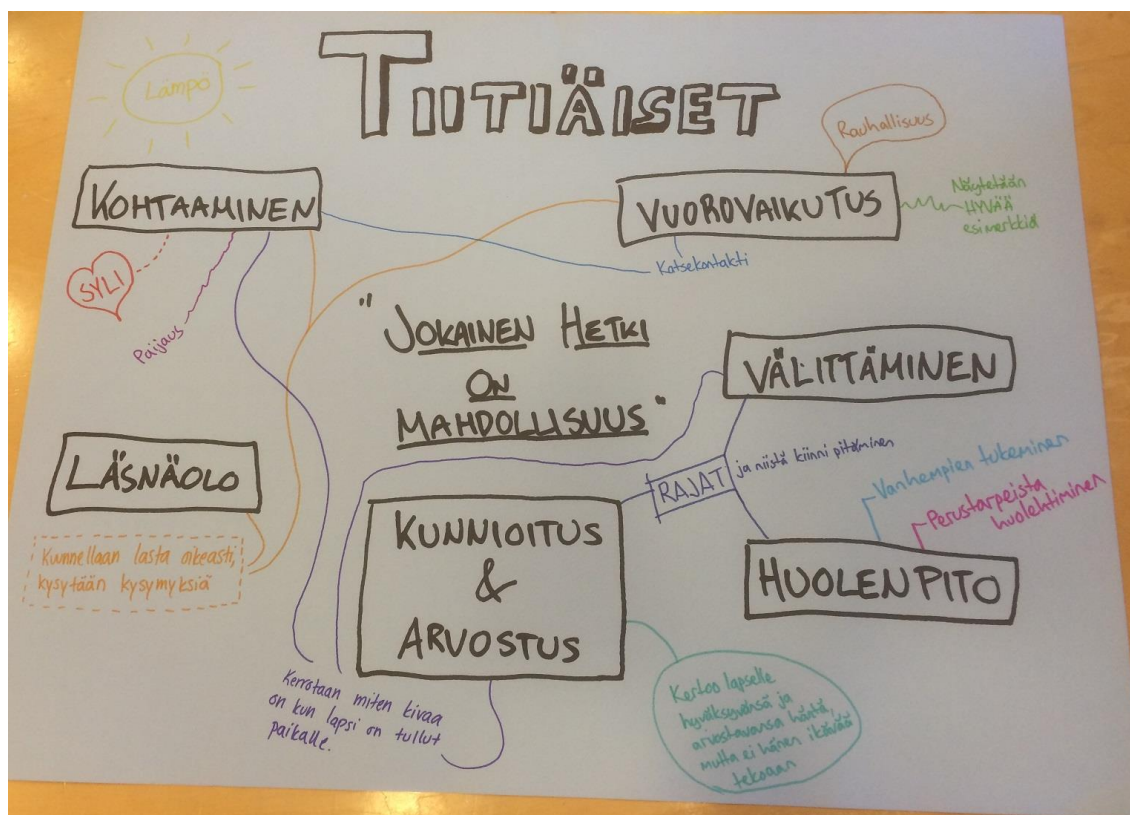 Lämpö
TIITIÄISET
Rauhallisuus
KOHTAAMINEN
VUOROVAIKUTUS
Näytetään
HYVÄÄ
esimerkkiä
SYLI
Paijaus
Katsekontakti
"JOKAINEN HETKI
ON
MAHDOLLISUUS"
VÄLITTÄMINEN
LÄSNÄOLO
RAJAT
ja niistä kiinni pitäminen
Vanhempien tukeminen
Perustarpeista
huolehtiminen
Kunnellaan lasta oikeasti,
kysytään kysymyksiä
KUNNIOITUS
&
ARVOSTUS
HUOLENPITO
Kerrotaan miten kivaa
on kun lapsi on tullut
paikalle.
Kertoo lapselle
hyväksyvänsä ja
arvostavansa häntä,
mutta ei hänen ikävää
tekoaan